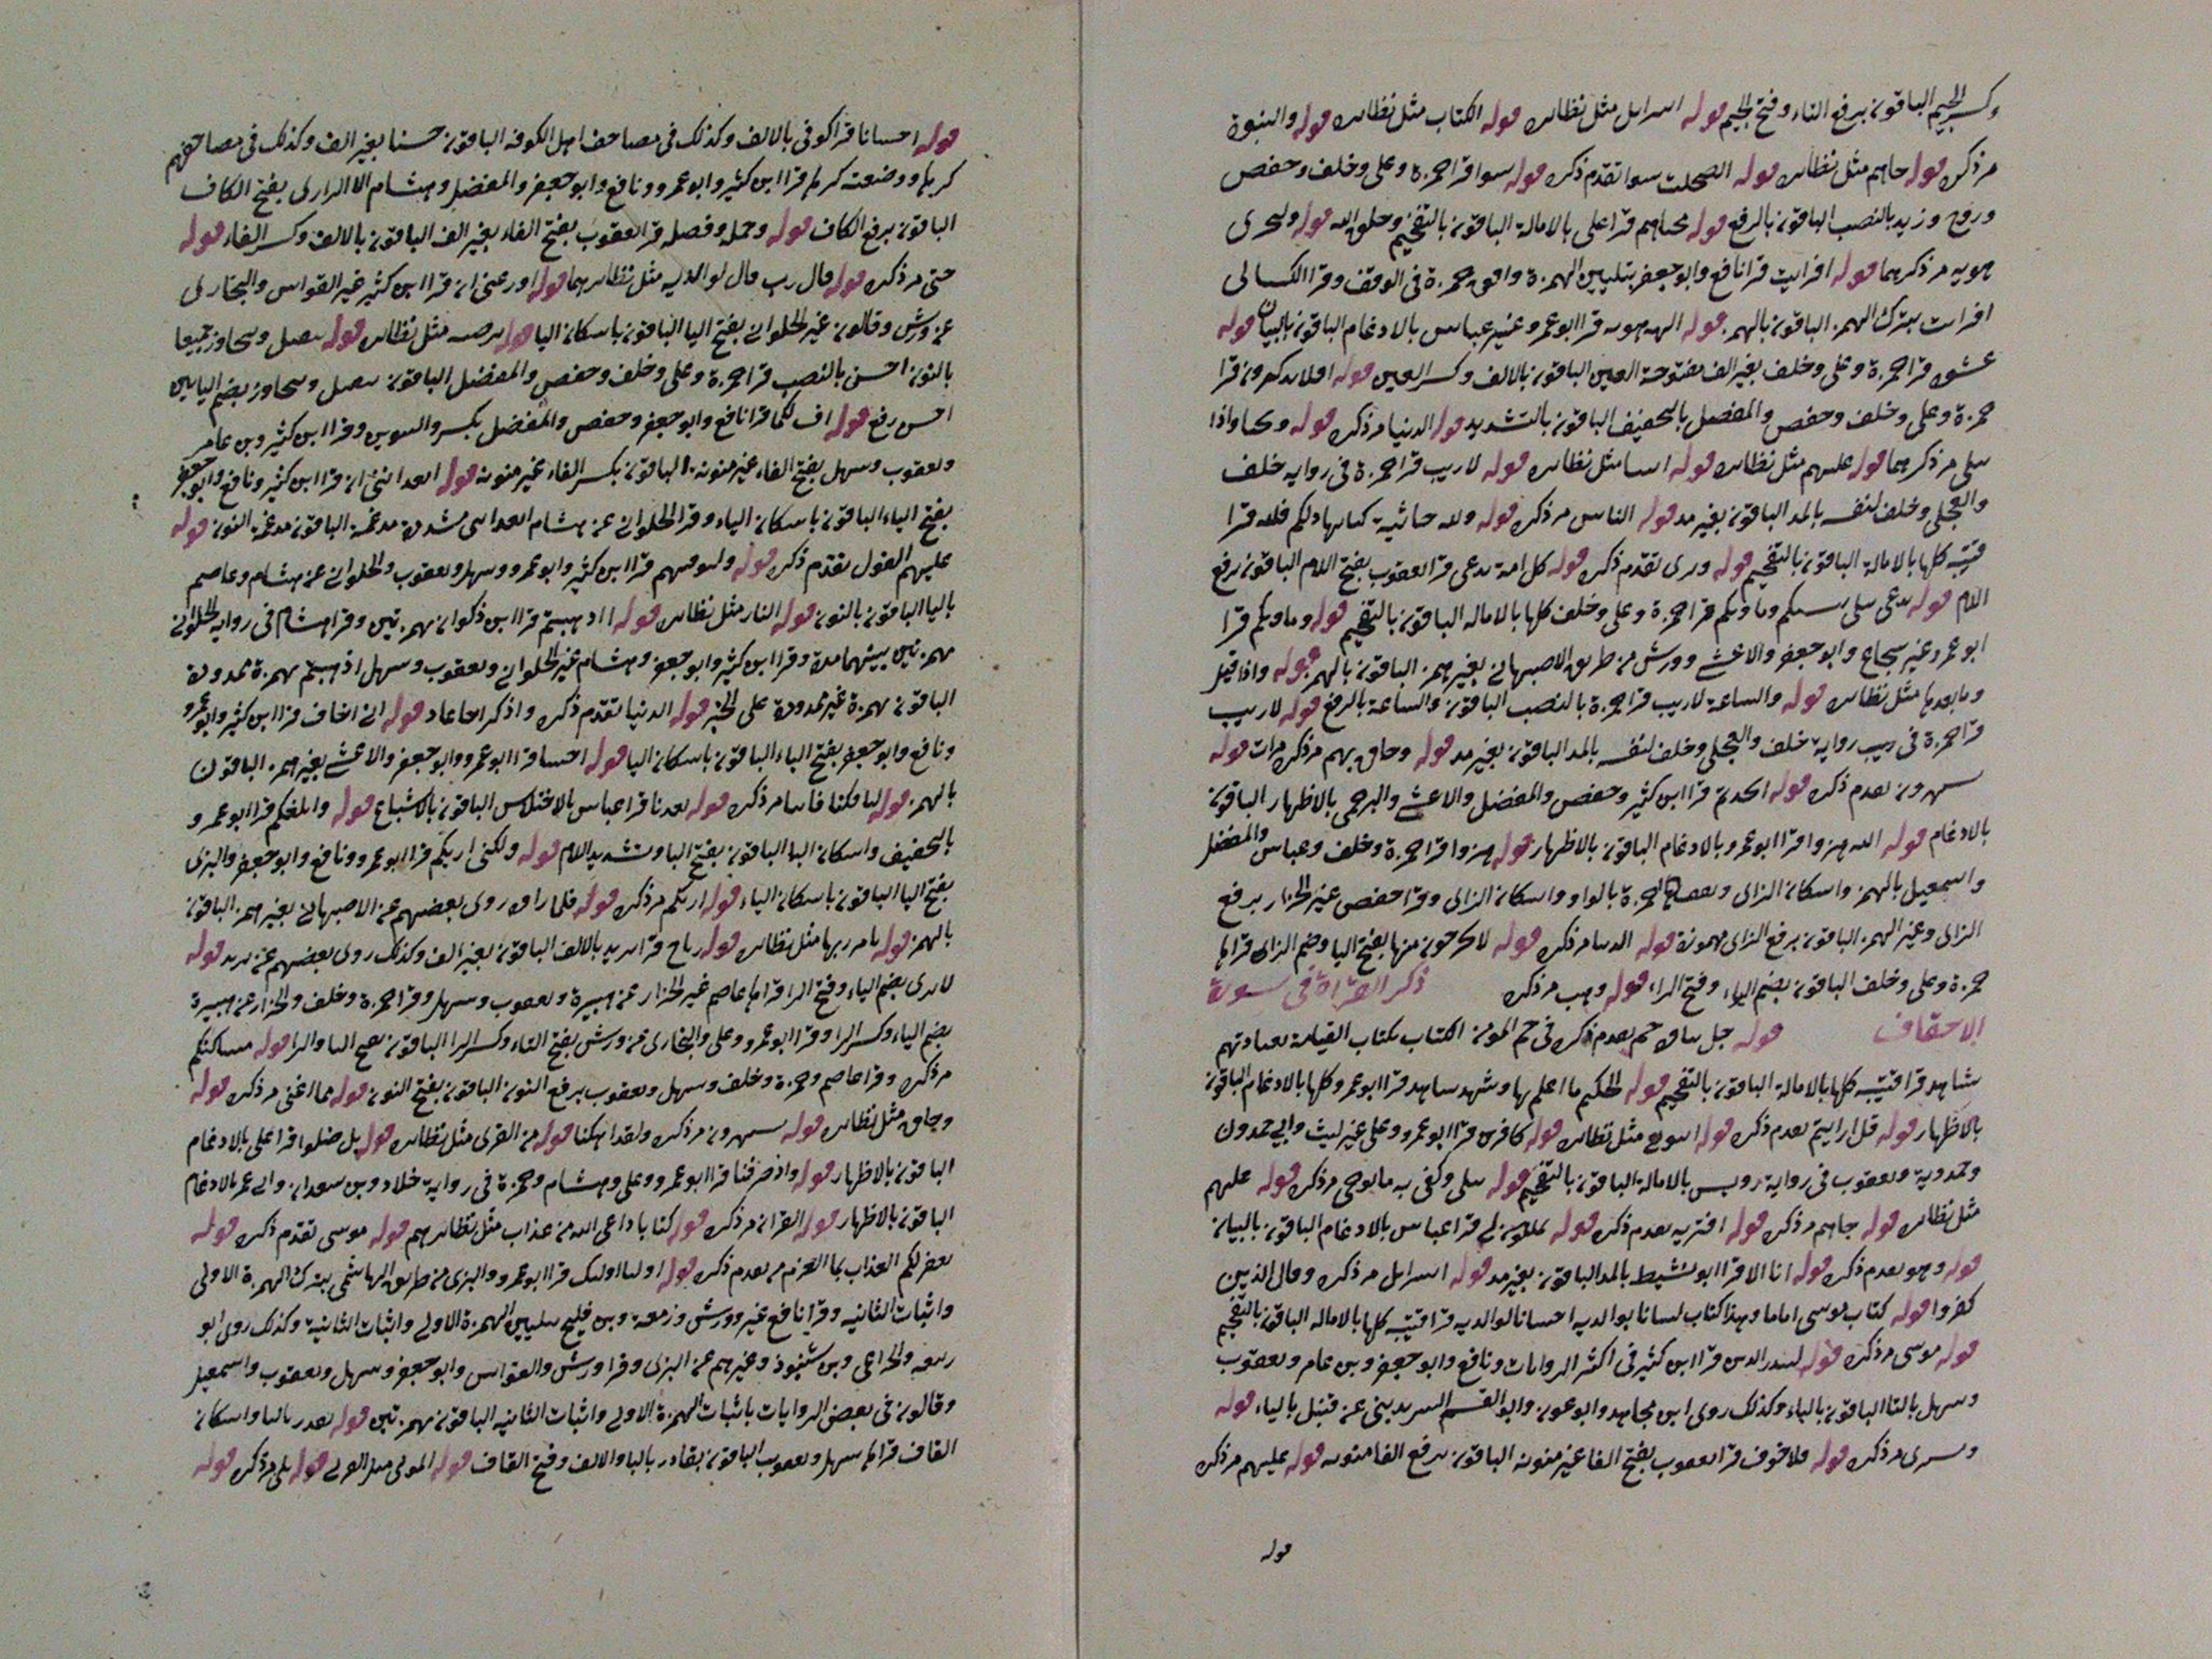 وكسر الجيم الباقون برفع التاء وفتح الجيم قوله اسرايل مثل نظايره قوله الكتاب مثل نظايره قوله والنبوة
مر ذكره قوله جاهم مثل نظايره قوله الصلحت سوا تقدم ذكره قوله سوا قرا حمزة وعلى وخلف وحفص
وروح وزيد بالنصب الباقون بالرفع قوله محياهم قرا على بالامالة الباقون بالتفخيم وخلق الله قوله ولتجزى
هويه مر ذكرهما قوله افرايت قرا نافع وابو جعفر بتليين الهمزة وافق حمزة فى الوقف وقرا الكسائى
افرايت بترك الهمز الباقون بالهمز قوله الهه هويه قرا ابو عمرو غير عباس بالادغام الباقون بالبيان قوله
غشوة قرا حمزة وعلى وخلف بغير الف مفتوحة الغين الباقون بالالف وكسر الغين قوله افلا تذكرون قرا
حمزة وعلى وخلف وحفص والمفضل بالتخفيف الباقون بالتشديد قوله الدنيا مر ذكره قوله ونحيا واذا
تتلى مر ذكرهما قوله عليهم مثل نظايره قوله اياتنا مثل نظايره قوله لا ريب قرا حمزة فى رواية خلف
والعجلى وخلف لنفسه بالمد الباقون بغير مد قوله الناس مر ذكره قوله ولله جاثية كتابها ذلكم قرا
قتيبة كلها بالامالة الباقون بالتفخيم قوله وترى تقدم ذكره قوله كل امة تدعى قرا يعقوب بفتح اللام الباقون برفع
اللام قوله تدعى تتلى ننسيكم وماويكم قرا حمزة وعلى وخلف كلها بالامالة الباقون بالتفخيم قوله وماويكم قرا
ابو عمرو غير شجاع وابو جعفر والاعشى وورش من طريق الاصبهانى بغير همز الباقون بالهمز قوله واذا قيل
وما بعدها مثل نظايره قوله والساعة لا ريب قرا حمزة بالنصب الباقون والساعة بالرفع قوله لا ريب
قرا حمزة فى ريب رواية خلف والعجلى وخلف لنفسه بالمد الباقون بغير مد قوله وحاق بهم مر ذكره مرات قوله
يستهزون تقدم ذكره قوله اتخذتم قرا ابن كثير وحفص والمفضل والاعشى والبرجمى بالاظهار الباقون
بالادغام قوله الله هزوا قرا ابو عمرو بالادغام الباقون بالاظهار قوله هزوا قرا حمزة وخلف وعباس والمفضل
واسمعيل بالهمز واسكان الزاى حمزة بالواو واسكان الزاى وقرا حفص غير الخزاز برفع
الزاى وغير الهمز الباقون برفع الزاى مهموزة قوله الدنيا مر ذكره قوله لا يخرجون منها بفتح اليا وضم الراى قراها
حمزة وعلى وخلف الباقون بضم الياء وفتح الراء قوله وهب مر ذكره ذكر القراة فى سورة
الاحقاف قوله جل ثناؤه حم تقدم ذكره فى حم المومن الكتاب بكتاب القيامة بعبادتهم
شاهد قرا قتيبة كلها بالامالة الباقون بالتفخيم قوله الحكيم ما اعلم بها وشهد شاهد قرا ابو عمرو كلها بالادغام الباقون
بالاظهار قوله قل ارايتم تقدم ذكره قوله ايتونى مثل نظايره قوله كافرين قرا ابو عمرو وعلى غير ليث وابى حمدون
وحمدويه ويعقوب فى رواية رويس بالامالة الباقون بالتفخيم قوله تتلى وكفى به ما يوحى مر ذكره قوله عليهم
مثل نظايره قوله جاهم مر ذكره قوله افتريه تقدم ذكره قوله تملكون لى قرا عباس بالادغام الباقون بالبيان
قوله وهو تقدم ذكره قوله انا الا قرا ابو نشيط بالمد الباقون بغير مد قوله اسرايل مر ذكره وقال الذين
كفروا قوله كتاب موسى اماما وهذا كتاب لسانا بوالديه احسانا لوالديه قرا قتيبة كلها بالامالة الباقون بالتفخيم
قوله موسى مر ذكره قوله لينذر الذين قرا ابن كثير فى اكثر الروايات ونافع وابو جعفر وبن عامر ويعقوب
وسهل بالتا الباقون بالياء وكذلك روى ابن مجاهد وابو عون وابو القسم عن قنبل بالياء قوله
وبشرى مر ذكره قوله فلا خوف قرا يعقوب بفتح الفا غير منونه الباقون برفع الفا منونه قوله عليهم مر ذكره
قوله
قوله احسانا قرا كوفى بالالف وكذلك فى مصاحف اهل الكوفه الباقون حسنا بغير الف وكذلك فى مصاحفهم
كرها ووضعته كرها قرا ابن كثير وابو عمرو ونافع وابو جعفر والمفضل وهشام الا الدارى بفتح الكاف
الباقون برفع الكاف قوله وحمله وفصله قرا يعقوب بفتح الفاء بغير الف الباقون بالالف وكسر الفاء قوله
حتى مر ذكره قوله قال رب قال لوالديه مثل نظايرهما قوله اوزعنى ان قرا ابن كثير غير القواس والبخارى
عن ورش وقالون غير الحلوانى بفتح اليا الباقون باسكان اليا قوله ترضيه مثل نظايره قوله نتقبل ونتجاوز جميعا
بالنون احسن بالنصب قرا حمزة وعلى وخلف وحفص والمفضل الباقون يتقبل ويتجاوز بضم اليايين
احسن رفع قوله اف لكما قرا نافع وابو جعفر وحفص والمفضل بكسر والتنوين وقرا ابن كثير وبن عامر
ويعقوب وسهل بفتح الفاء غير منونه الباقون بكسر الفاء غير منونه قوله اتعداننى ان قرا ابن كثير ونافع وابو جعفر
بفتح الياء الباقون باسكان الياء وقرا الحلوانى عن هشام اتعدانى مشددة مدغمة الباقون مدغمة النون قوله
عليهم القول تقدم ذكره قوله وليوفيهم قرا ابن كثير وابو عمرو وسهل ويعقوب والحلوانى عن هشام وعاصم
باليا الباقون بالنون قوله النار مثل نظايره قوله ااذهبتم قرا ابن ذكوان بهمزتين وقرا هشام فى رواية الحلوانى
بهمزتين بينهما مدة وقرا ابن كثير وابو جعفر وهشام غير الحلوانى ويعقوب وسهل اذهبتم بهمزة ممدودة
الباقون بهمزة غير ممدودة على الخبر قوله الدنيا تقدم ذكره واذكر اخا عاد قوله انى اخاف قرا ابن كثير وابو عمرو
ونافع وابو جعفر بفتح الياء الباقون باسكان اليا قوله اجيتنا قرا ابو عمرو وابو جعفر والاعشى بغير همز الباقون
بالهمز قوله لتافكنا فاتنا مر ذكره قوله تعدنا قرا عباس بالاختلاس الباقون بالاشباع قوله وابلغكم قرا ابو عمرو
بالتخفيف واسكان البا الباقون بفتح البا وتشديد اللام قوله ولكنى اريكم قرا ابو عمرو ونافع وابو جعفر والبزى
بفتح اليا الباقون باسكان الياء قوله اريكم مر ذكره قوله فلما راوه روى بعضهم عن الاصبهانى بغير همز الباقون
بالهمز قوله بامر ربها مثل نظايره قوله رياح قرا يزيد بالالف الباقون بغير الف وكذلك روى بعضهم عن يزيد قوله
لا يرى بضم الياء وفتح الرا قراها عاصم غير الخزاز عن هبيرة ويعقوب وسهل وقرا حمزة وخلف والخزاز عن هبيرة
بضم الياء وكسر الرا وقرا ابو عمرو وعلى والبخارى عن ورش بفتح التاء وكسر الرا الباقون بفتح التا والرا قوله مساكنكم
مر ذكره وقرا عاصم وحمزة وخلف وسهل ويعقوب برفع النون الباقون بفتح النون قوله فما اغنى مر ذكره قوله
وحاق مثل نظايره قوله يستهزون مر ذكره ولقد اهلكنا قوله من القرى مثل نظايره قوله بل ضلوا قرا على بالادغام
الباقون بالاظهار قوله واذ صرفنا قرا ابو عمرو وعلى وهشام وحمزة فى رواية خلاد وبن سعدان وابى عمر بالادغام
الباقون بالاظهار قوله القران مر ذكره قوله كتابا داعى الله من عذاب مثل نظايرهم قوله موسى تقدم ذكره قوله
يغفر لكم العذاب بما العزم من تقدم ذكره قوله اوليا اوليك قرا ابو عمرو والبزى من طريق الهاشمى بترك الهمزة الاولى
واثبات الثانيه وقرا نافع غير وورش وزمعة وبن فليح بتليين الهمزة الاولى واثبات الثانية وكذلك روى ابو
ربيعه والخزاعى وبن شنبوذ وغيرهم عن البزى وقرا ورش والقواس وابو جعفر وسهل ويعقوب واسمعيل
وقالون فى بعض الروايات باثبات الهمزة الاولى واثبات الثانيه الباقون بهمزتين قوله يقدر باليا واسكان
القاف قراها سهل ويعقوب الباقون بقادر بالبا والالف وفتح القاف قوله الموتى مثل قوله بلى مر ذكره قوله